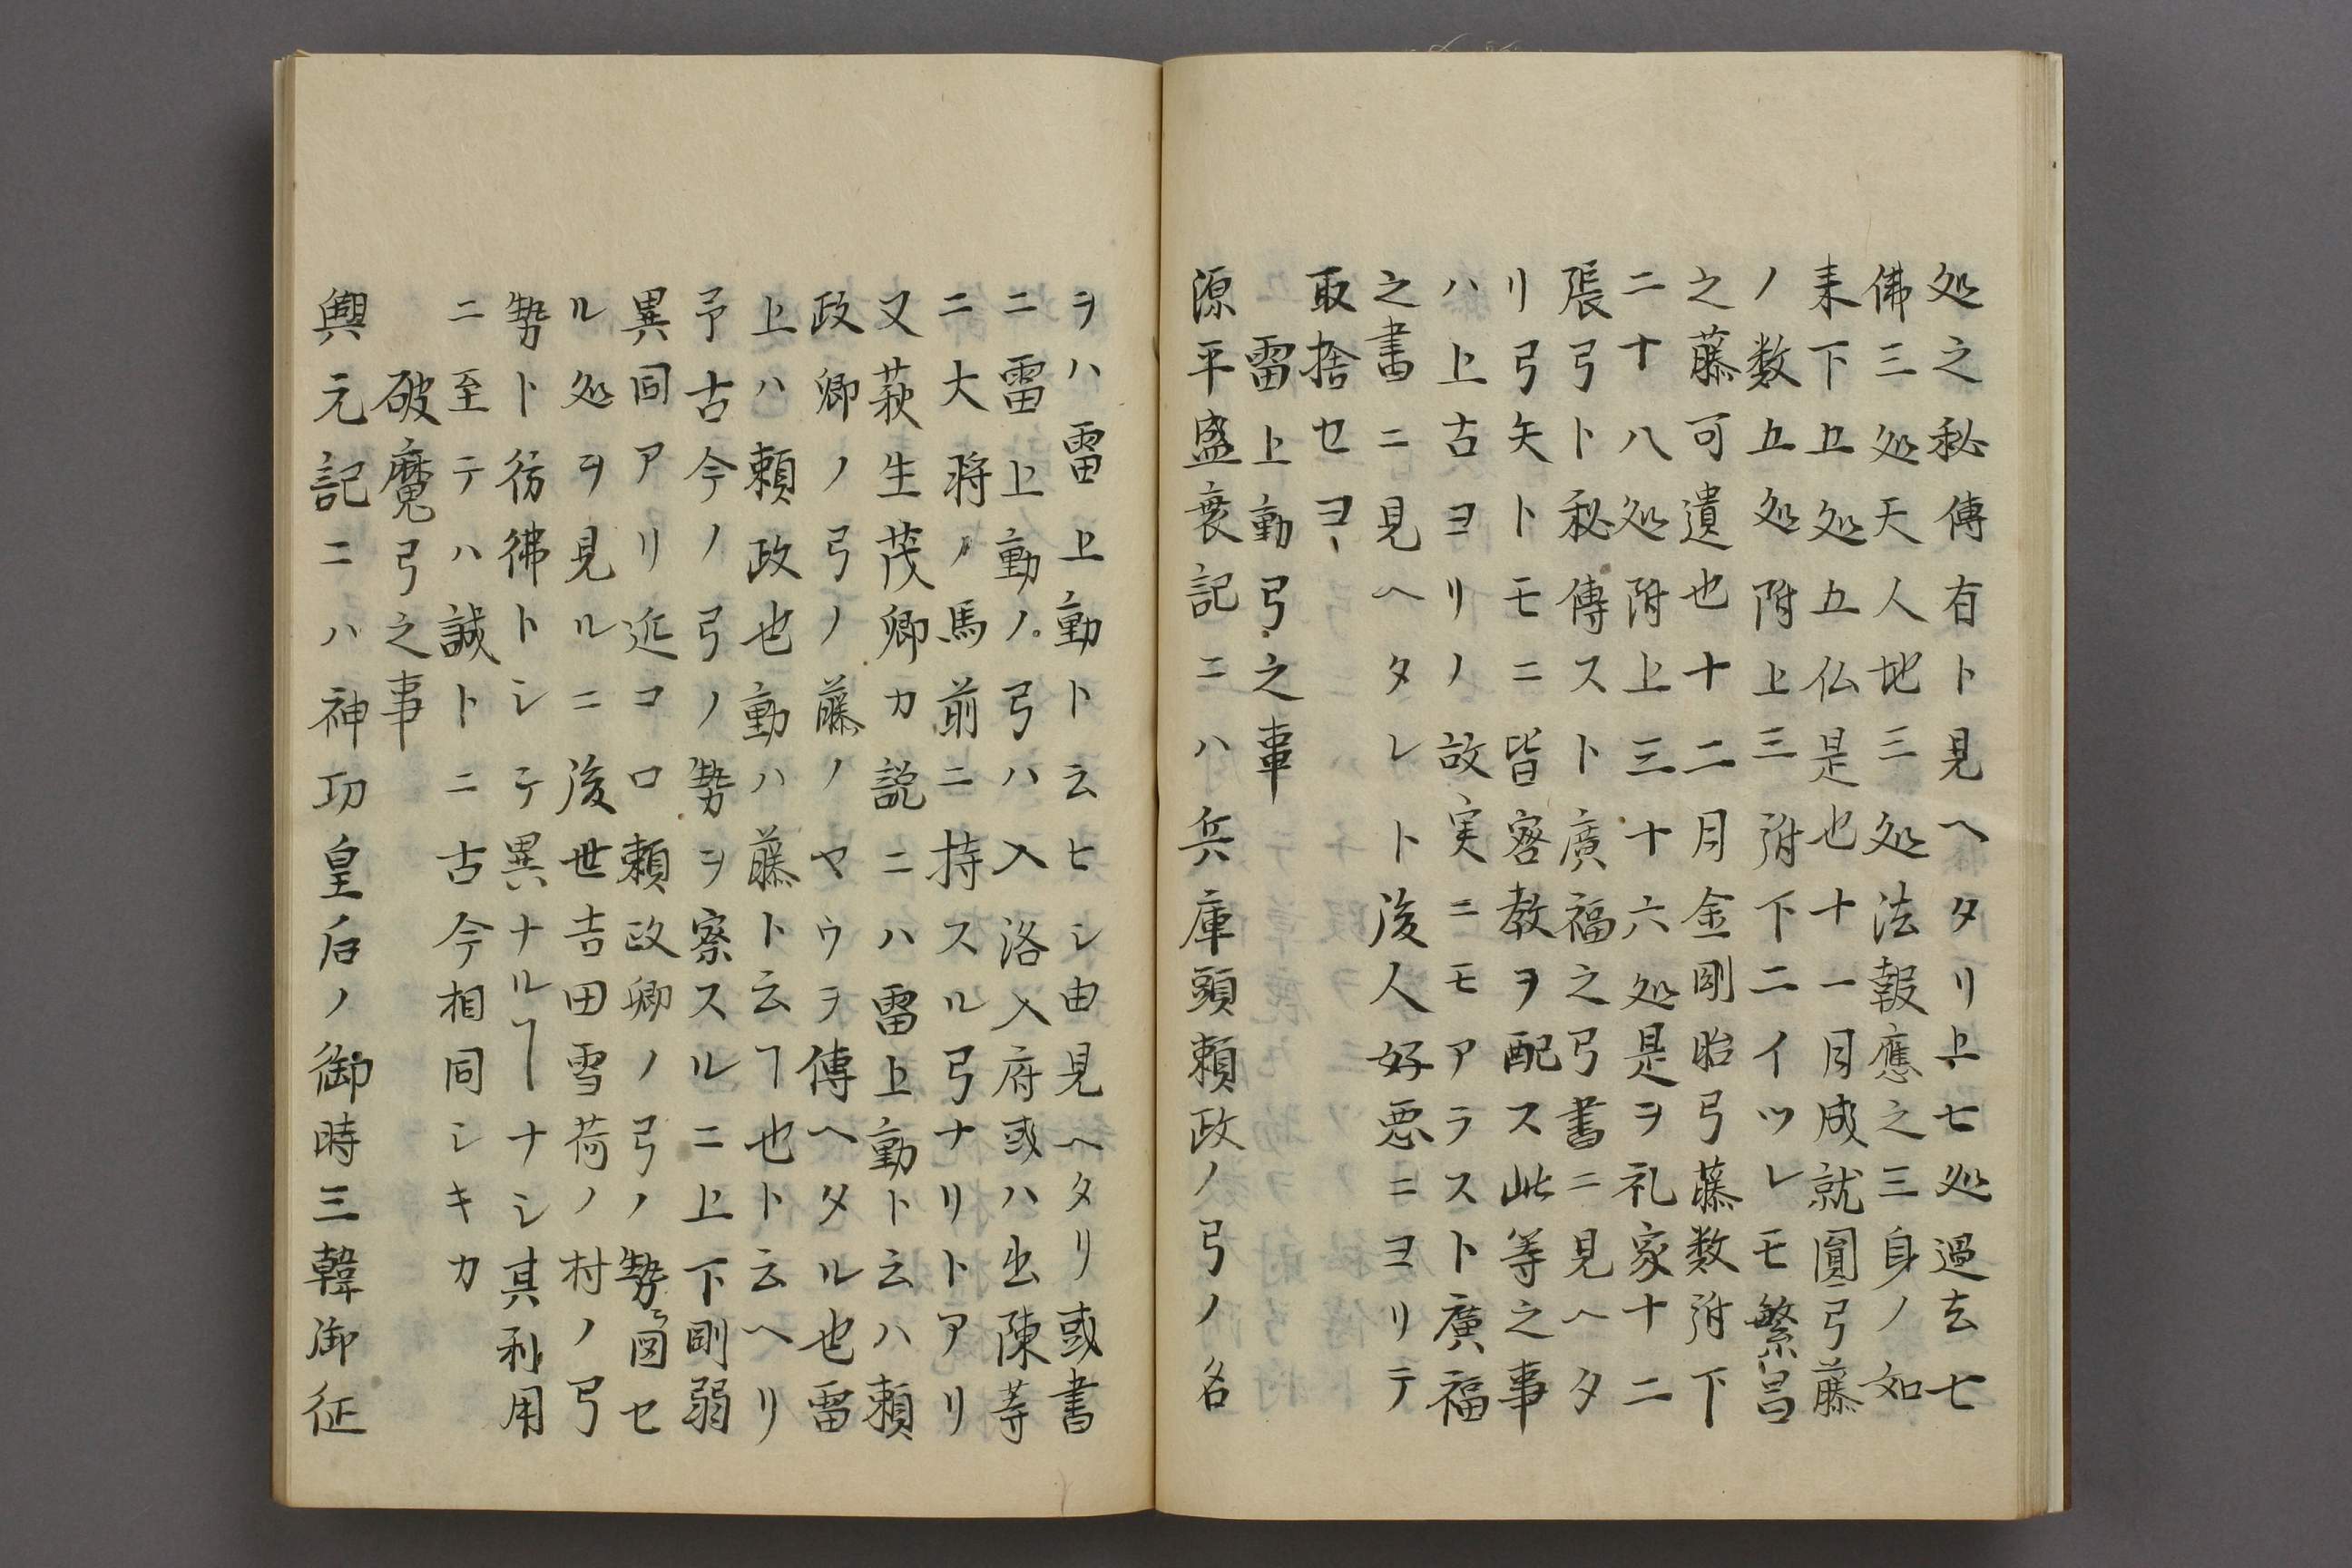 処之秘傳有ト見ヘタリ上七処過去七
佛三処天人地三処法報應之三身ノ如
来下五処五仏是也十一月成就圓弓藤
ノ数五処附上三附下二イツレモ繁昌
之藤可遺也十二月金剛胎弓藤数附下
二十八処附上三十六処是ヲ礼家十二
張弓ト秘傳スト廣福之弓書ニ見ヘタ
リ弓矢トモニ皆密教ヲ配ス此等之事
ハ上古ヨリノ故実ニモアラスト廣福
之書ニ見ヘタレト後人好悪ニヨリテ
取捨セヨ
雷上動弓之事
源平盛衰記ニハ兵庫頭頼政ノ弓ノ名
ヲハ雷上動ト云ヒシ由見ヘタリ或書
ニ雷上動ノ弓ハ入洛入府或ハ出陳等
ニ大将ノ馬前ニ持スル弓ナリトアリ
又萩生茂卿カ説ニハ雷上動ト云ハ頼
政卿ノ弓ノ藤ノヤウヲ傳ヘタル也雷
上ハ頼政也動ハ藤ト云ヿ也ト云ヘリ
予古今ノ弓ノ勢ヲ察スルニ上下剛弱
異同アリ近コロ頼政卿ノ弓ノ勢ヲ図セ
ル処ヲ見ルニ後世吉田雪荷ノ村ノ弓
勢ト彷彿トシテ異ナルヿナシ其利用
ニ至テハ誠トニ古今相同シキカ
破魔弓之事
輿元記ニハ神功皇后ノ御時三韓御征